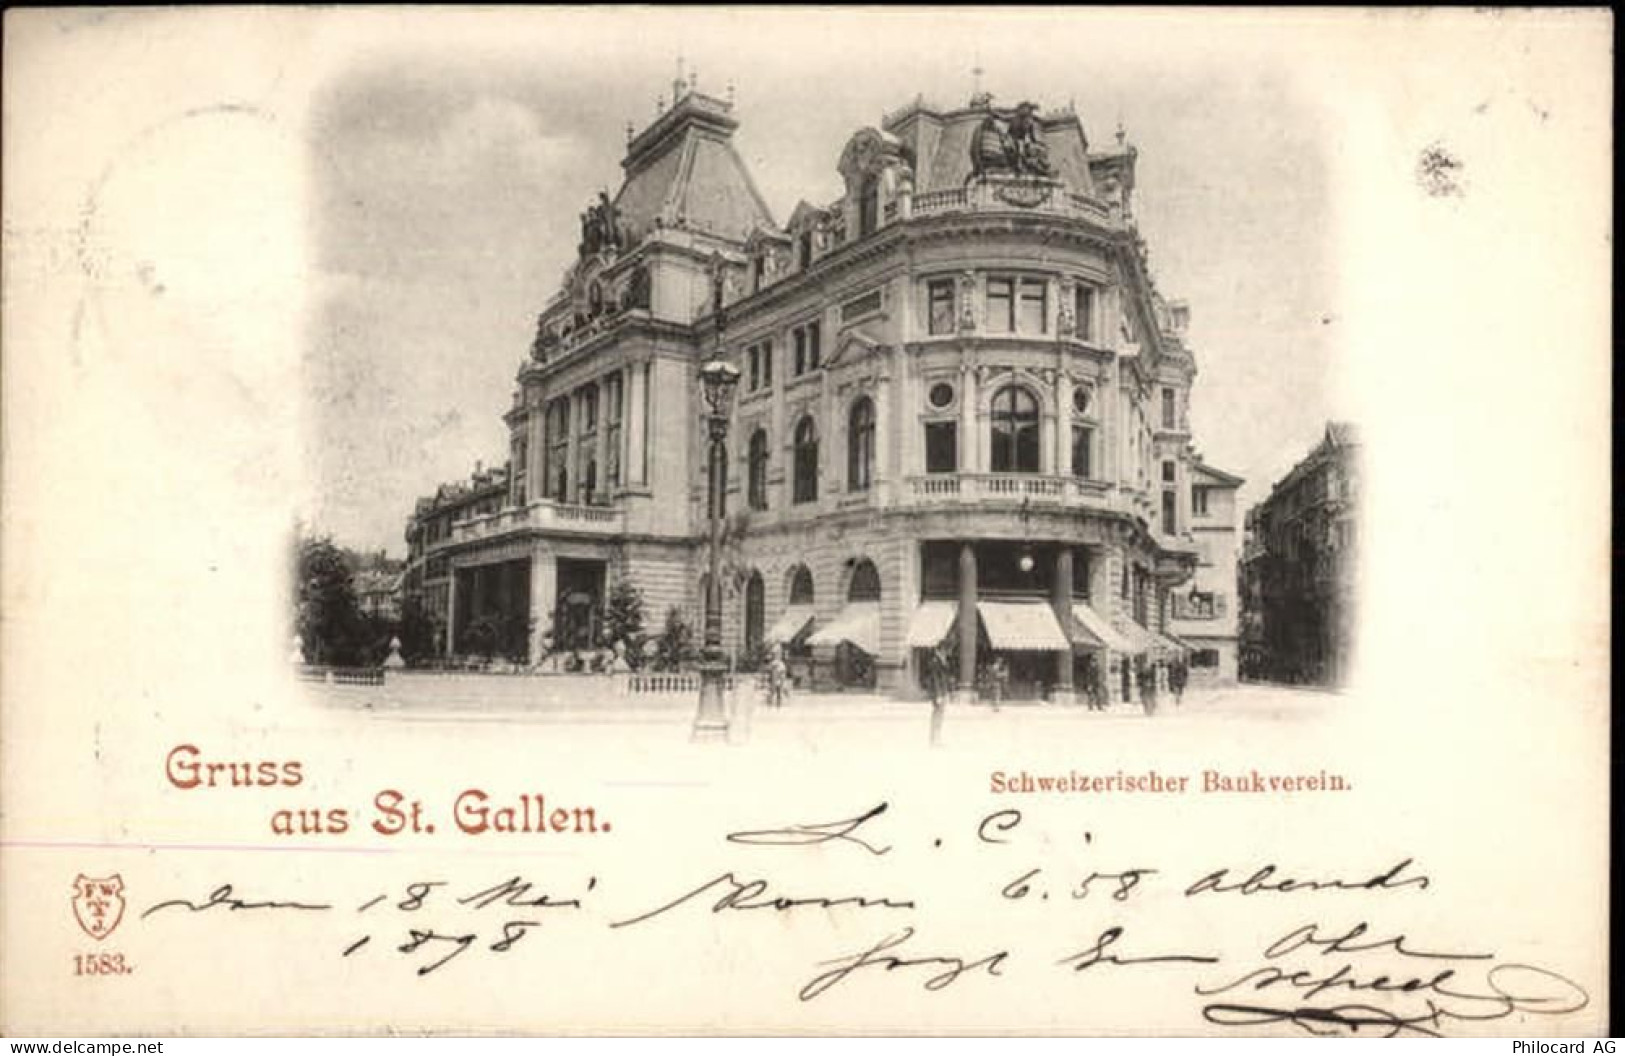 Gruss
aus St. Gallen.
Schweizerischer Bankverein.
L. C.
den 18 Mai
6.58 Abends
1898
F W
J.
1583.
delcampe.net
Philocard AG